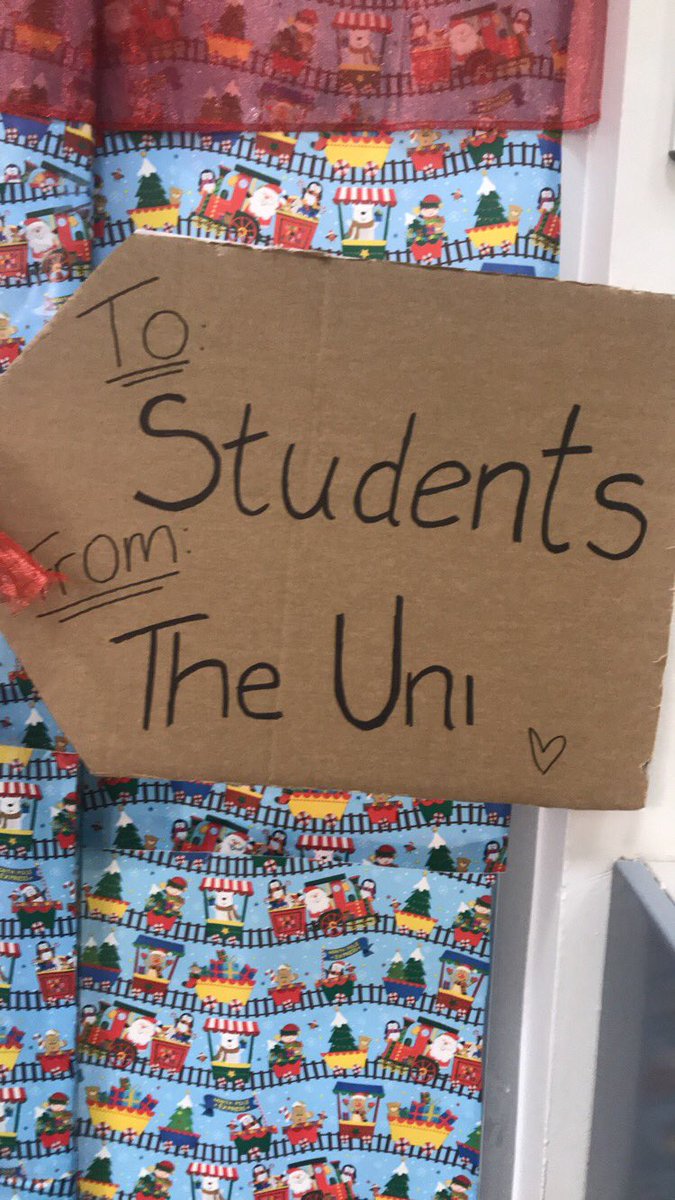 To:
Students
From:
The Uni